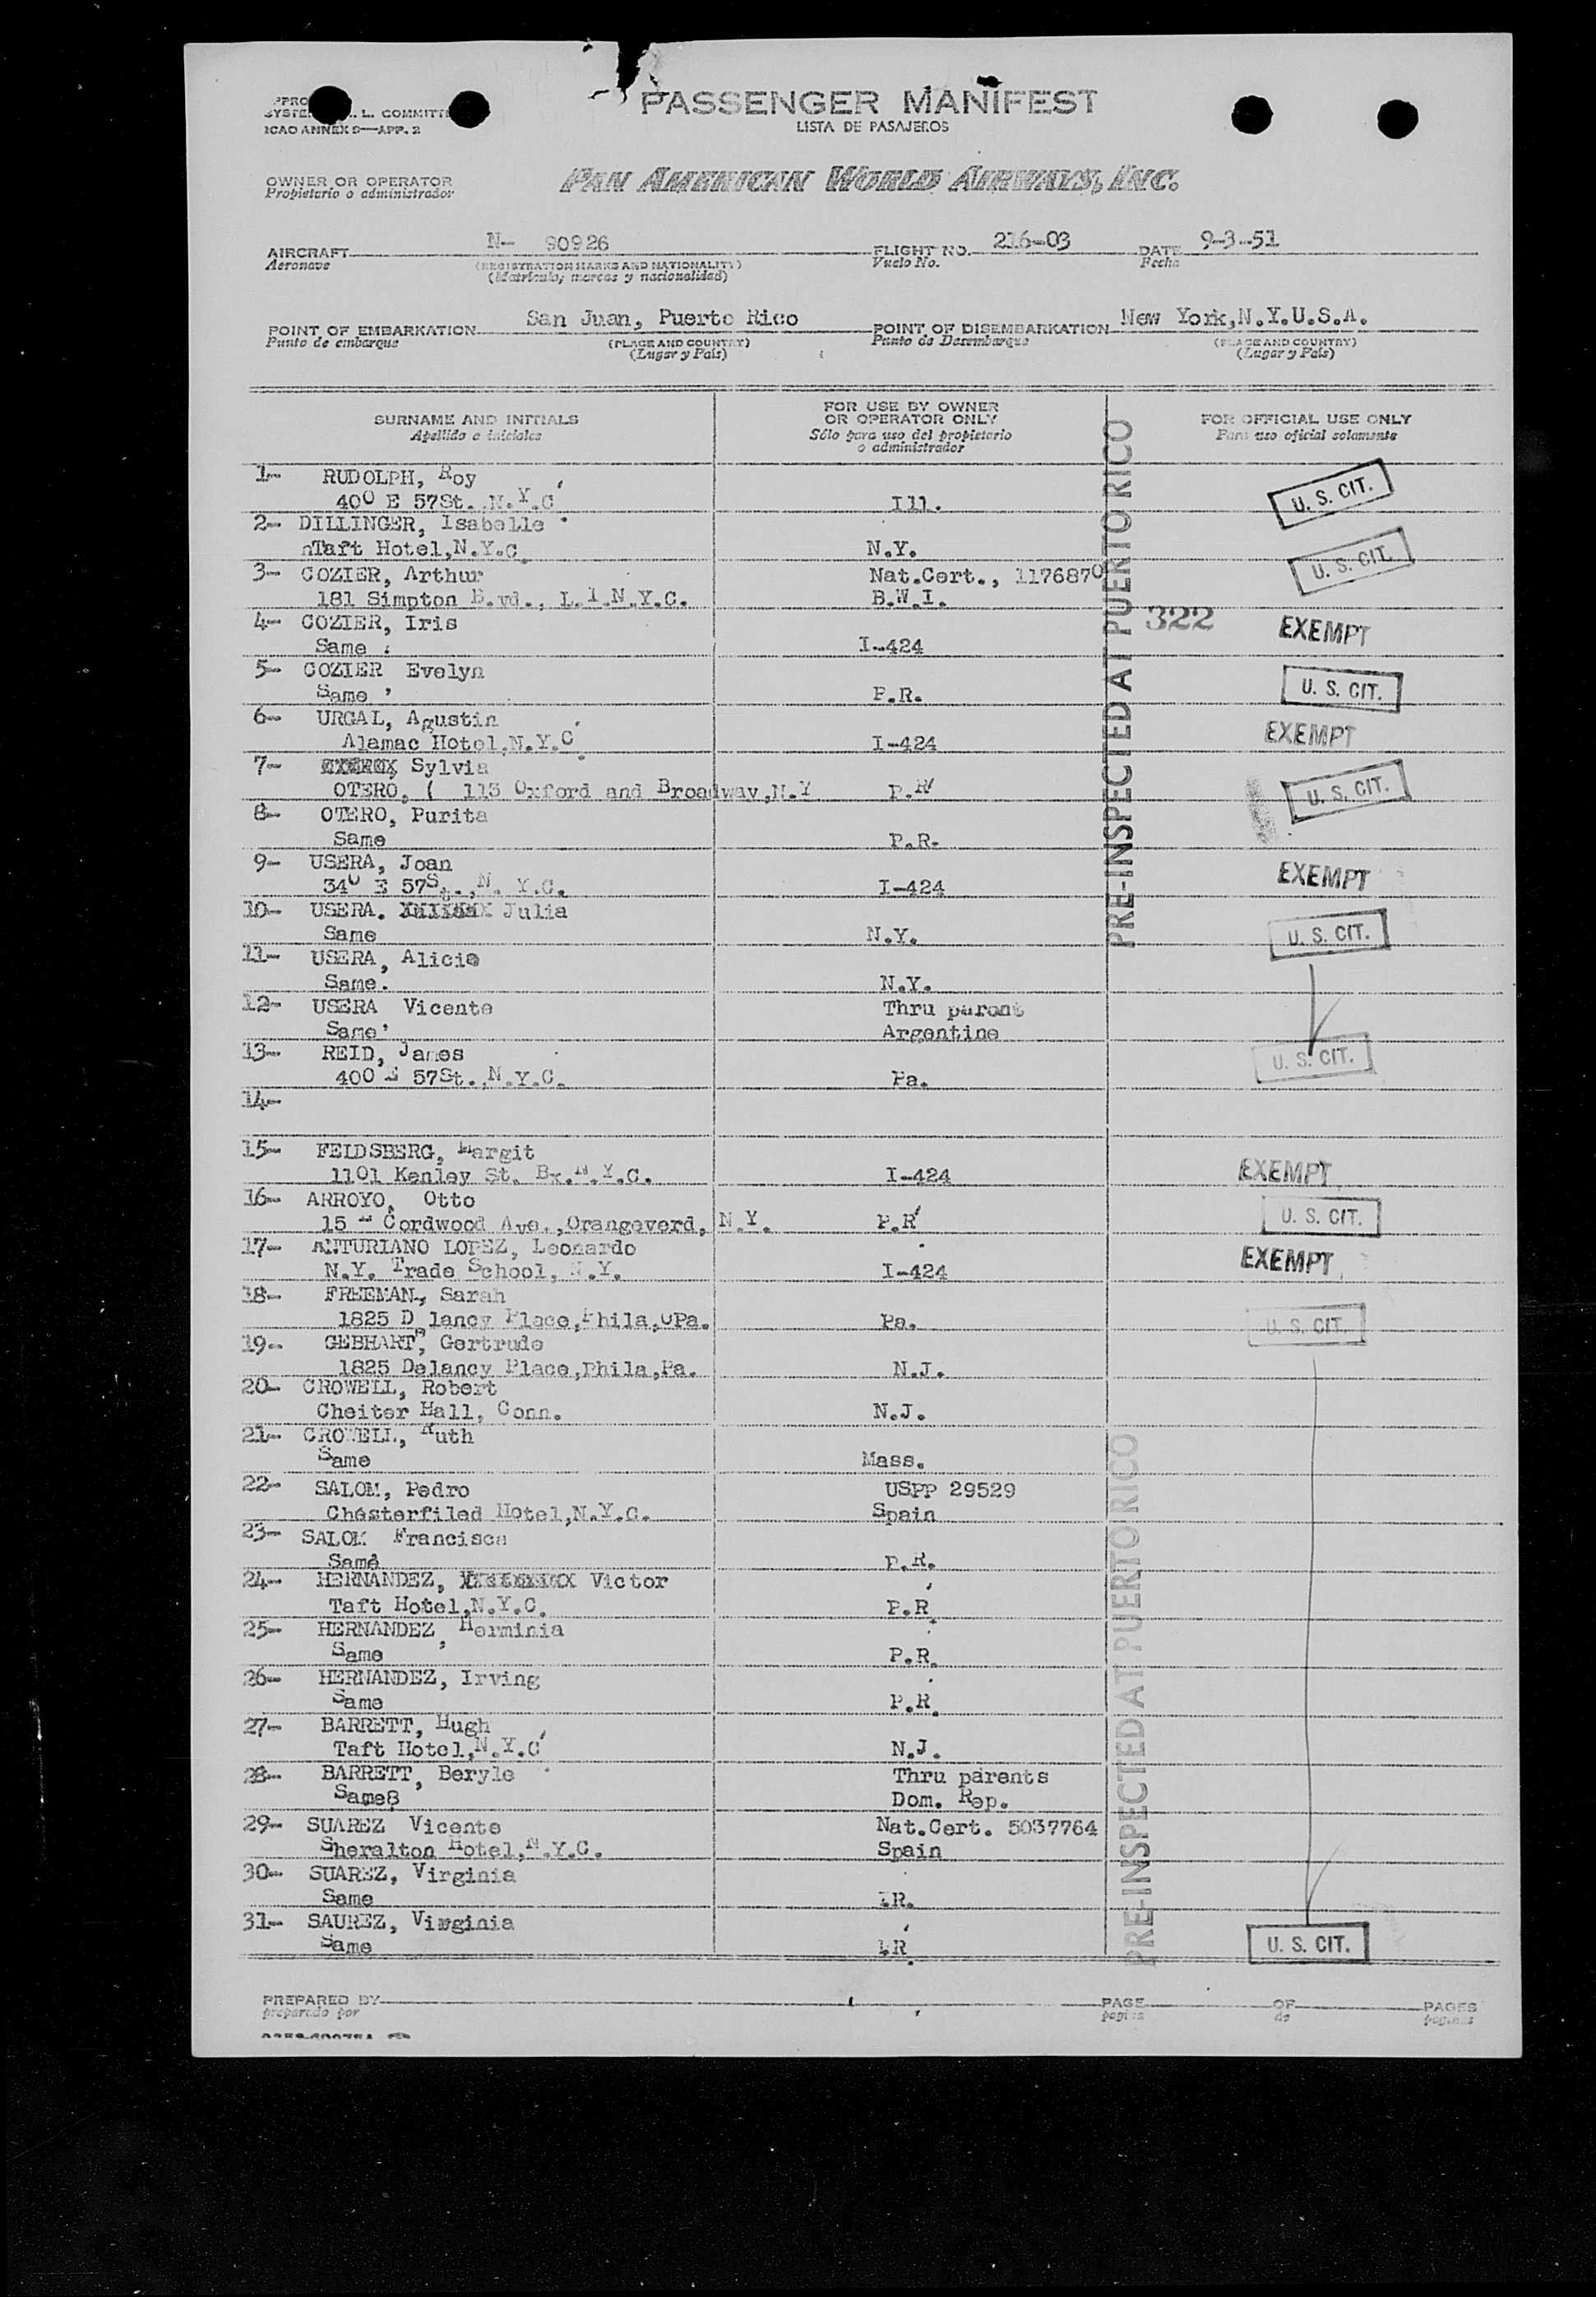 PASSENGER MANIFEST
LISTA DE PASAJEROS
ICAO ANNEX 9—APP. 2
OWNER OR OPERATOR
Propietario o administrador
PAN AMERICAN WORLD AIRWAYS, INC.
AIRCRAFT N- 90926 FLIGHT NO. 216-03 DATE 9-3-51
Aeronave (REGISTRATION MARKS AND NATIONALITY) Vuelo No. Fecha
(Matrícula, marcas y nacionalidad)
POINT OF EMBARKATION San Juan, Puerto Rico POINT OF DISEMBARKATION New York,N.Y.U.S.A.
Punto de embarque (PLACE AND COUNTRY) Punto de Desembarque (PLACE AND COUNTRY)
(Lugar y País) (Lugar y País)
SURNAME AND INITIALS
Apellido e iniciales
FOR USE BY OWNER
OR OPERATOR ONLY
Sólo para uso del propietario
o administrador
FOR OFFICIAL USE ONLY
Para uso oficial solamente
PRE-INSPECTED AT PUERTO RICO
1- RUDOLPH, Roy
400 E 57St. N.Y.C Ill. U. S. CIT.
2- DILLINGER, Isabelle
Taft Hotel,N.Y.C. N.Y. U. S. CIT.
3- COZIER, Arthur Nat.Cert., 1176870
181 Simpton B.vd., L.I.N.Y.C. B.W.I.
4- COZIER, Iris 322 EXEMPT
Same I-424
5- COZIER Evelyn
Same P.R. U. S. CIT.
6- URGAL, Agustin
Alamac Hotel,N.Y.C. I-424 EXEMPT
7- Sylvia
OTERO, ( 113 Oxford and Broadway,N.Y P.R U. S. CIT.
8- OTERO, Purita
Same P.R.
9- USERA, Joan
340 E 57S..,N. Y.C. I-424 EXEMPT
10- USERA. Julia
Same N.Y. U. S. CIT.
11- USERA, Alicia
Same. N.Y.
12- USERA Vicente Thru parent
Same Argentine
13- REID, James
400 E 57St.,N.Y.C. Pa. U. S. CIT.
14-
15- FELDSBERG, Margit
1101 Kenley St. Bx.N.Y.C. I-424 EXEMPT
16- ARROYO, Otto
15 Cordwood Ave.,Orangeverd, N.Y. P.R U. S. CIT.
17- ANTURIANO LOPEZ, Leonardo
N.Y. Trade School, N.Y. I-424 EXEMPT
18- FREEMAN, Sarah
1825 D lancy Place,Phila, Pa. Pa. U. S. CIT.
19- GEBHART, Gertrude
1825 Delancy Place,Phila,Pa. N.J.
20- CROWELL, Robert
Cheiter Hall, Conn. N.J.
21- CROWELL, Ruth
Same Mass.
22- SALOM, Pedro USPP 29529
Chesterfiled Hotel,N.Y.C. Spain
23- SALOM Francisca
Same P.R.
24- HERNANDEZ, Victor
Taft Hotel,N.Y.C. P.R.
25- HERNANDEZ, Herminia
Same P.R.
26- HERNANDEZ, Irving
Same P.R.
27- BARRETT, Hugh
Taft Hotel,N.Y.C N.J.
28- BARRETT, Beryle Thru parents
Same8 Dom. Rep.
29- SUAREZ Vicente Nat.Cert. 5037764
Sheralton Hotel,N.Y.C. Spain
30- SUAREZ, Virginia
Same .R.
31- SAUREZ, Virginia
Same R U. S. CIT.
PRE-INSPECTED AT PUERTO RICO
PREPARED BY PAGE OF PAGES
preparado por pagina de paginas